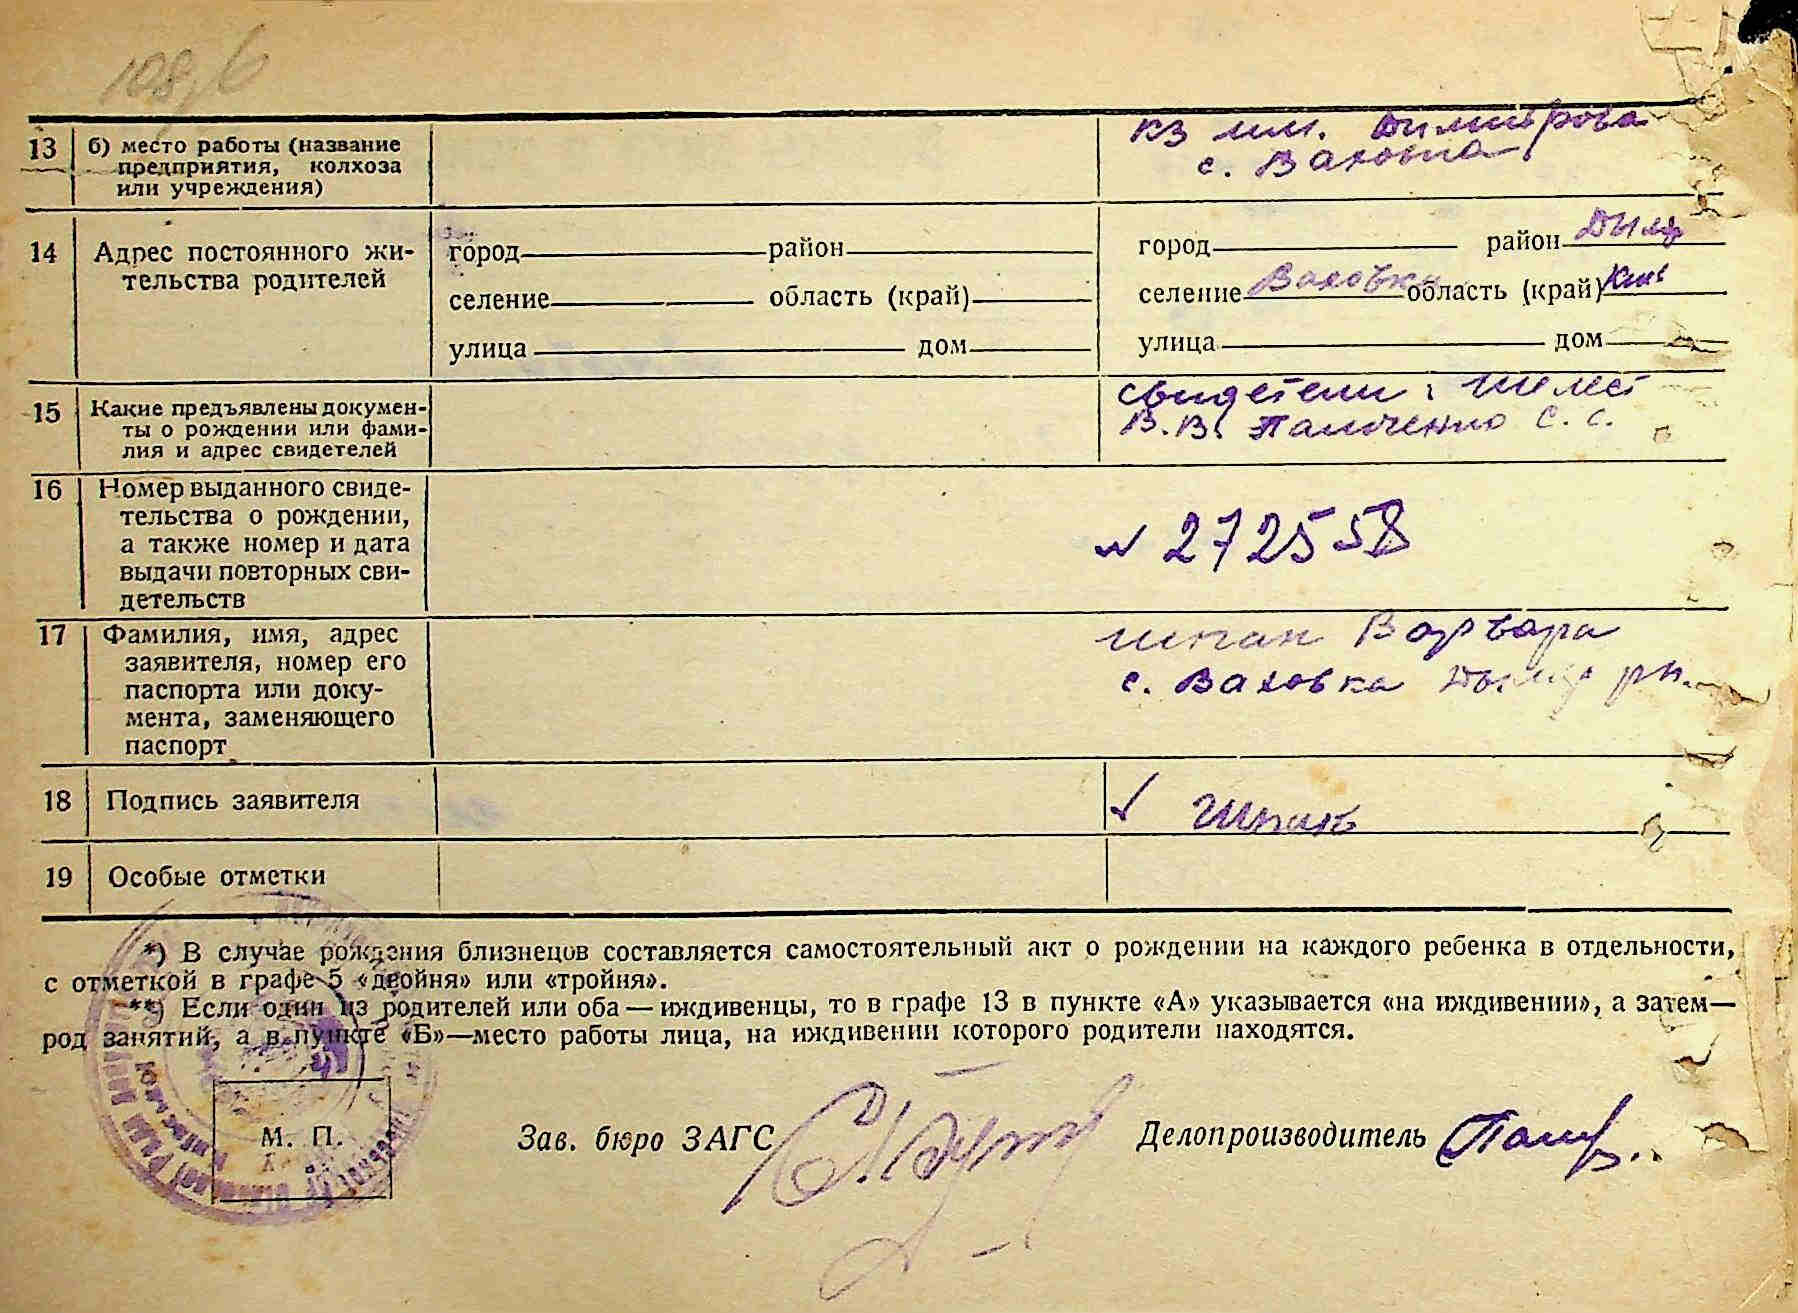 108/6
13 б) место работы (название
предприятия, колхоза
или учреждения)
кз им. Димитрова
с. Ваховка
14 Адрес постоянного жи-
тельства родителей
город район
селение область (край)
улица дом
город район Дым
селение Ваховка область (край) Киї
улица дом
15 Какие предъявлены докумен-
ты о рождении или фами-
лия и адрес свидетелей
свидетели:
В.В. С. С.
16 Номер выданного свиде-
тельства о рождении,
а также номер и дата
выдачи повторных сви-
детельств
№ 272558
17 Фамилия, имя, адрес
заявителя, номер его
паспорта или доку-
мента, заменяющего
паспорт
Шпак Варвара
с. Ваховка рн.
18 Подпись заявителя
Шпак
19 Особые отметки
*) В случае рождения близнецов составляется самостоятельный акт о рождении на каждого ребенка в отдельности,
с отметкой в графе 5 «двойня» или «тройня».
**) Если один из родителей или оба — иждивенцы, то в графе 13 в пункте «А» указывается «на иждивении», а затем—
род занятий, а в пункте «Б»—место работы лица, на иждивении которого родители находятся.
М. П.
Зав. бюро ЗАГС
Делопроизводитель